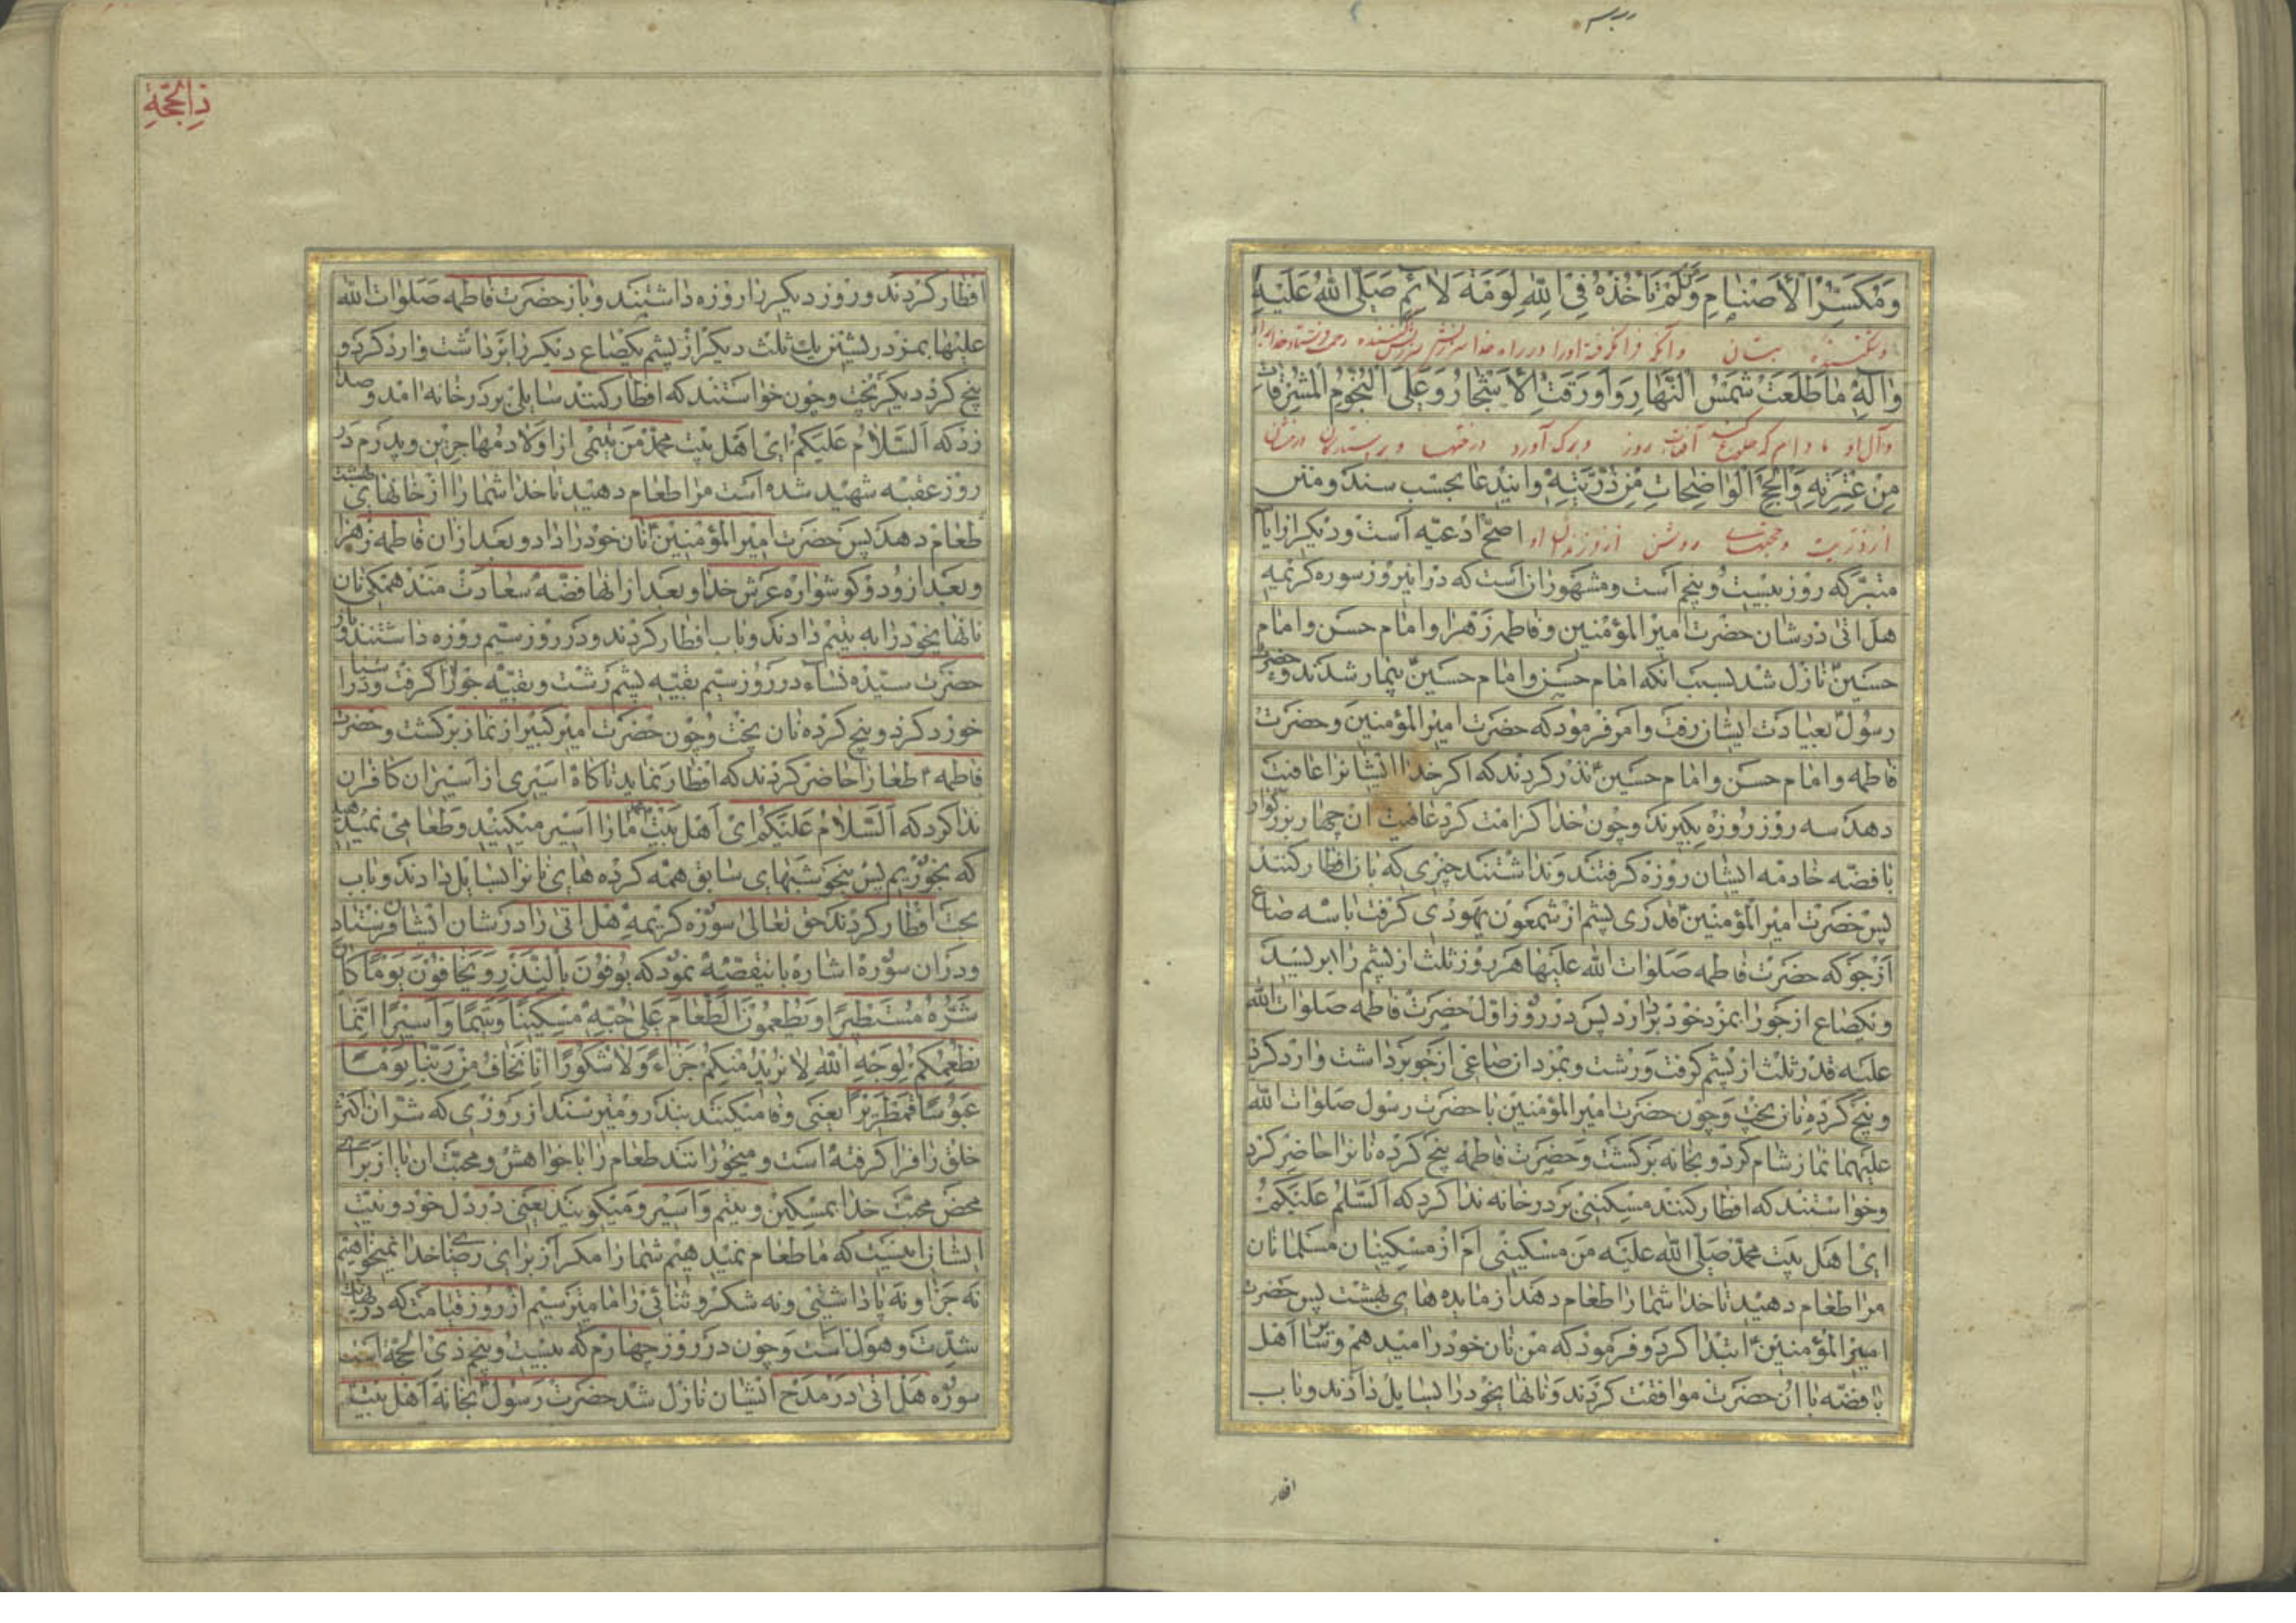 وَمُكَسِّرًا لِلْأَصْنَامِ وَلَمْ تَأْخُذْهُ فِي اللّٰهِ لَوْمَةَ لَائِمٍ صَلَّى اللّٰهُ عَلَيْهِ
وشکننده بتان و آنکه فرا نگرفته او را در راه خدا سرزنش سرزنش کننده رحمت فرستد خدا بر او
وَآلِهِ مَا طَلَعَتْ شَمْسُ النَّهَارِ وَأَوْرَقَتِ الْأَشْجَارُ وَعَلَى النُّجُومِ الْمُشْرِقَاتِ
و آل او مادام که طلوع کند آفتاب روز و برگ آورد درختها و بر ستارگان درخشان
مِنْ عِتْرَتِهِ وَالْحُجَجِ الْوَاضِحَاتِ مِنْ ذُرِّيَّتِهِ و ایندعا بحسب سند و متن
از ذریت و حجتهای روشن از فرزندان او اصحّ ادعیه است و دیکر از ایام
متبرکه روز بیست و پنجم است و مشهور آن است که در اینروز سوره کریمه
هل اتی در شان حضرت امیر المؤمنین و فاطمه زهرا و امام حسن و امام
حسین نازل شد بسبب انکه امام حسن و امام حسین بیمار شدند و حضرت
رسول بعیادت ایشان رفت و امر فرمود که حضرت امیر المؤمنین و حضرت
فاطمه و امام حسن و امام حسین نذر کردند که اکر خدا ایشانرا عافیت
دهد سه روز روزه بکیرند و چون خدا کرامت کرد عافیت ان چهار بزرکوار
با فضّه خادمه ایشان روزه کرفتند و نداشتند چیزی که بان افطار کنند
پس حضرت امیر المؤمنین قدری پشم از شمعون یهودی کرفت با سه صاع
از جو که حضرت فاطمه صلوات الله علیها هر روز ثلث از پشم را بریسد
و یکصاع از جو را بمزد خود بردارد پس در روز اول حضرت فاطمه صلوات الله
علیه قدر ثلث از پشم کرفت و رشت و بمزد ان صاعی از جو برداشت و ارد کرد
و پنج کرده نان پخت و چون حضرت امیر المؤمنین با حضرت رسول صلوات الله
علیهما نماز شام کرد و بخانه برکشت و حضرت فاطمه پنج کرده نانرا حاضر کرد
و خواستند که افطار کنند مسکینی بر در خانه ندا کرد که السّلم علیکم
ای اهل بیت محمد صلی الله علیه من مسکینی ام از مسکینان مسلمانان
مرا طعام دهید تا خدا شما را طعام دهد از مایده های بهشت پس حضرت
امیر المؤمنین ابتدا کرد و فرمود که من نان خود را میدهم و سایر اهل
با فضّه با ان حضرت موافقت کردند و نانهای خود را بسایل دادند و باب
افطار
ذِالْحَجَّةِ
افطار کردند و روز دیکر را روزه داشتند و باز حضرت فاطمه صلوات الله
علیها بمزد ریشتن یک ثلث دیکر از پشم یکصاع دیکر را برداشت و ارد کرد و
پنج کرد دیکر پخت و چون خواستند که افطار کنند سایلی بر در خانه امد و صدا
زد که السّلام علیکم ای اهل بیت محمد من یتیمی از اولاد مهاجرین و پدرم در
روز عقبه شهید شده است مرا طعام دهید تا خدا شما را از خانهای بهشت
طعام دهد پس حضرت امیر المؤمنین نان خود را داد و بعد از ان فاطمه زهرا
و بعد از و دو کوشواره عرش خدا و بعد از انها فضّه سعادت مند همکی نان
نانهای خود را به یتیم دادند و باب افطار کردند و در روز سیّم روزه داشتند و باز
حضرت سیّده نساء در روز سیّم بقیّه پشم رشت و بقیّه جو را کرفت و در اسیا
خورد کرد و پنج کرده نان پخت و چون حضرت امیر کبیر از نماز برکشت و حضرت
فاطمه طعام را حاضر کردند که افطار نماید ناکاه اسیری از اسیران کافران
ندا کرد که السّلام علیکم ای اهل بیت محمد ما را اسیر میکنید و طعامی نمیدهید
که بخوریم پس بنحو شبهای سابق همه کرده های نانرا بسایل دادند و باب
بحت افطار کردند حق تعالی سوره کریمه هل اتی را در شان ایشان فرستاد
و دران سوره اشاره باینقصّه نمود که یُوفُونَ بِالنَّذْرِ وَیَخَافُونَ یَوْمًا کَانَ
شَرُّهُ مُسْتَطِیرًا وَیُطْعِمُونَ الطَّعَامَ عَلَی حُبِّهِ مِسْکِینًا وَیَتِیمًا وَأَسِیرًا إِنَّمَا
نُطْعِمُکُمْ لِوَجْهِ اللّٰهِ لَا نُرِیدُ مِنْکُمْ جَزَاءً وَلَا شُکُورًا إِنَّا نَخَافُ مِنْ رَبِّنَا یَوْمًا
عَبُوسًا قَمْطَرِیرًا یعنی وفا میکنند بنذر و میترسند از روزی که شرّ ان اکثر
خلق را فرا کرفته است و میخورانند طعام را با خواهش و محبّت ان یا از برای
محض محبّت خدا بمسکین و یتیم و اسیر و میکویند یعنی در دل خود و نیّت
ایشان اینست که ما طعام نمیدهیم شما را مکر از برای رضای خدا نمیخواهیم
نه جزا و نه پاداشتی و نه شکر و ثنائی را ما میترسیم از روز قیامت که در نهایت
شدّت و هول است و چون در روز چهارم که بیست و پنجم ذی الحجّه است
سوره هل اتی در مدح ایشان نازل شد حضرت رسول بخانه اهل بیت